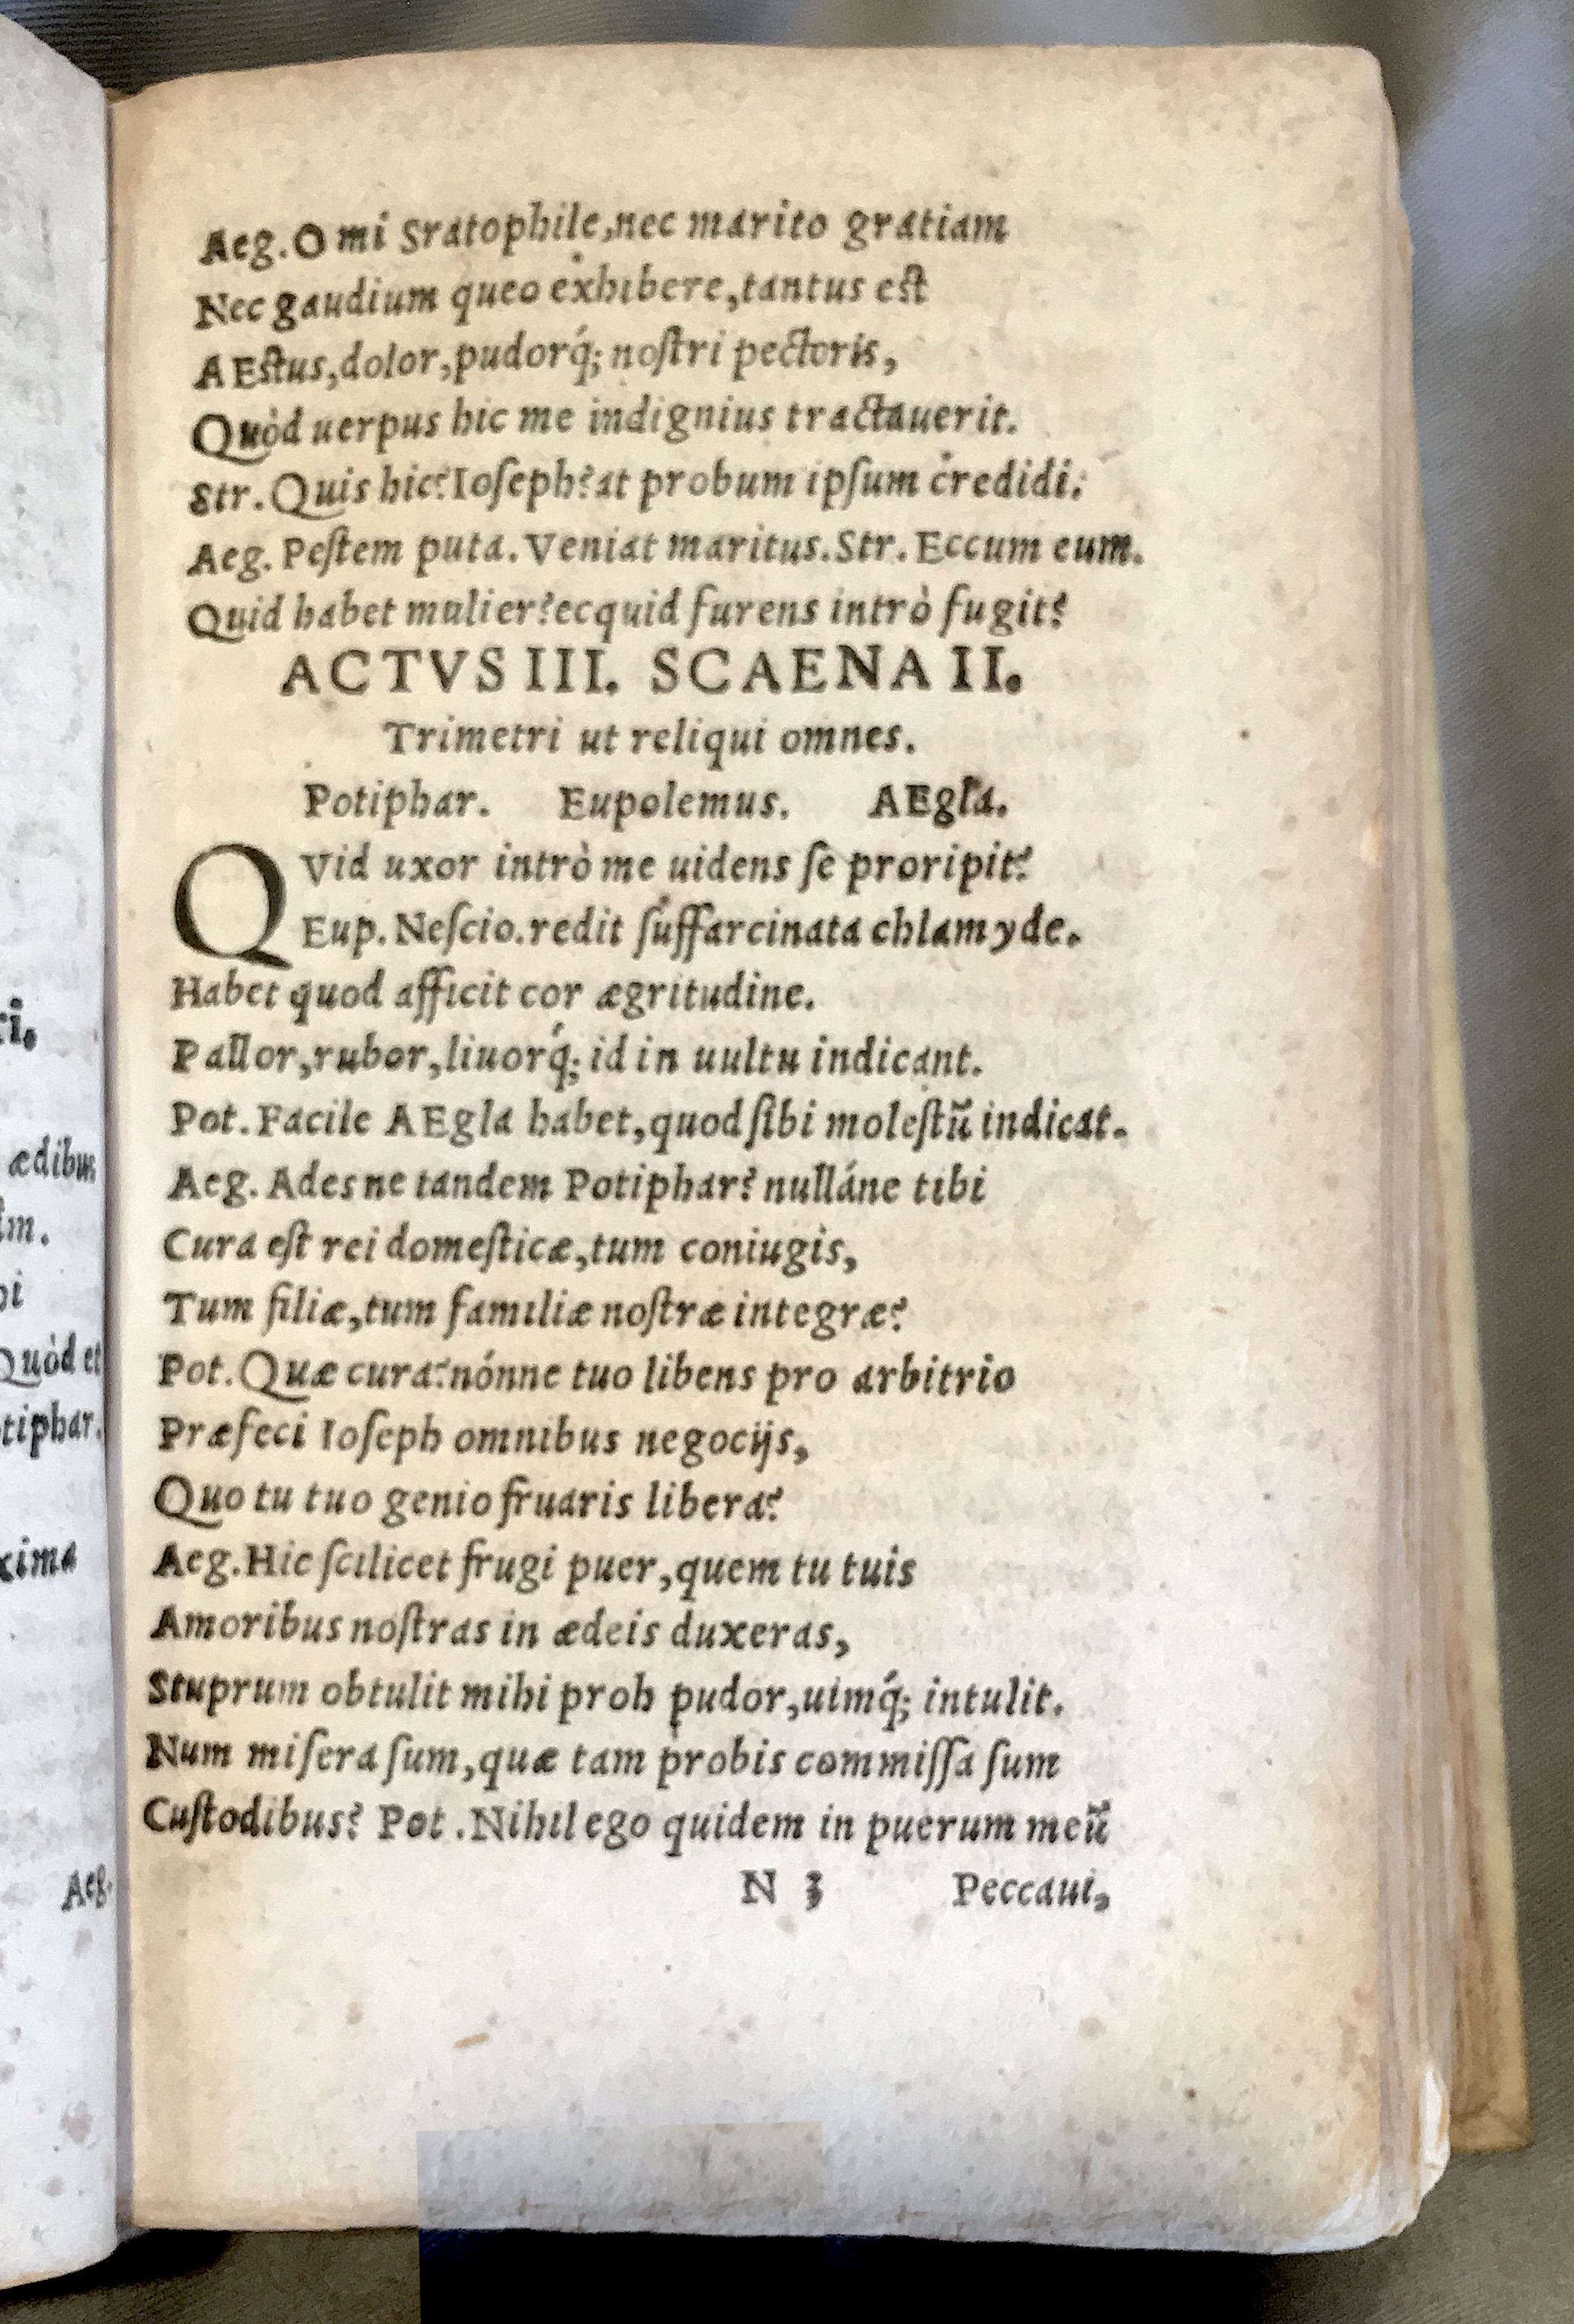 Aeg. O mi Sratophile, nec marito gratiam
Nec gaudium queo exhibere, tantus est
AEstus, dolor, pudorq́; noſtri pectoris,
Quòd uerpus hic me indignius tractauerit.
Str. Quis hic? Ioſeph? at probum ipſum credidi.
Aeg. Peſtem puta. Veniat maritus. Str. Eccum eum.
Quid habet mulier? ecquid furens intrò fugit?
ACTVS III. SCAENA II.
Trimetri ut reliqui omnes.
Potiphar. Eupolemus. AEgla.
QVid uxor intrò me uidens ſe proripit?
Eup. Neſcio. redit ſuffarcinata chlamyde.
Habet quod afficit cor ægritudine.
Pallor, rubor, liuorq́; id in uultu indicant.
Pot. Facile AEgla habet, quod ſibi moleſtũ indicat.
Aeg. Adesne tandem Potiphar? nulláne tibi
Cura eſt rei domeſticæ, tum coniugis,
Tum filiæ, tum familiæ noſtræ integræ?
Pot. Quæ cura? nónne tuo libens pro arbitrio
Præfeci Ioſeph omnibus negocijs,
Quo tu tuo genio fruaris libera?
Aeg. Hic ſcilicet frugi puer, quem tu tuis
Amoribus noſtras in ædeis duxeras,
Stuprum obtulit mihi proh pudor, uimq́; intulit.
Num miſera ſum, quæ tam probis commiſſa ſum
Cuſtodibus? Pot. Nihil ego quidem in puerum meũ
N 3 Peccaui,
ædibus
Quòd et
Aeg.